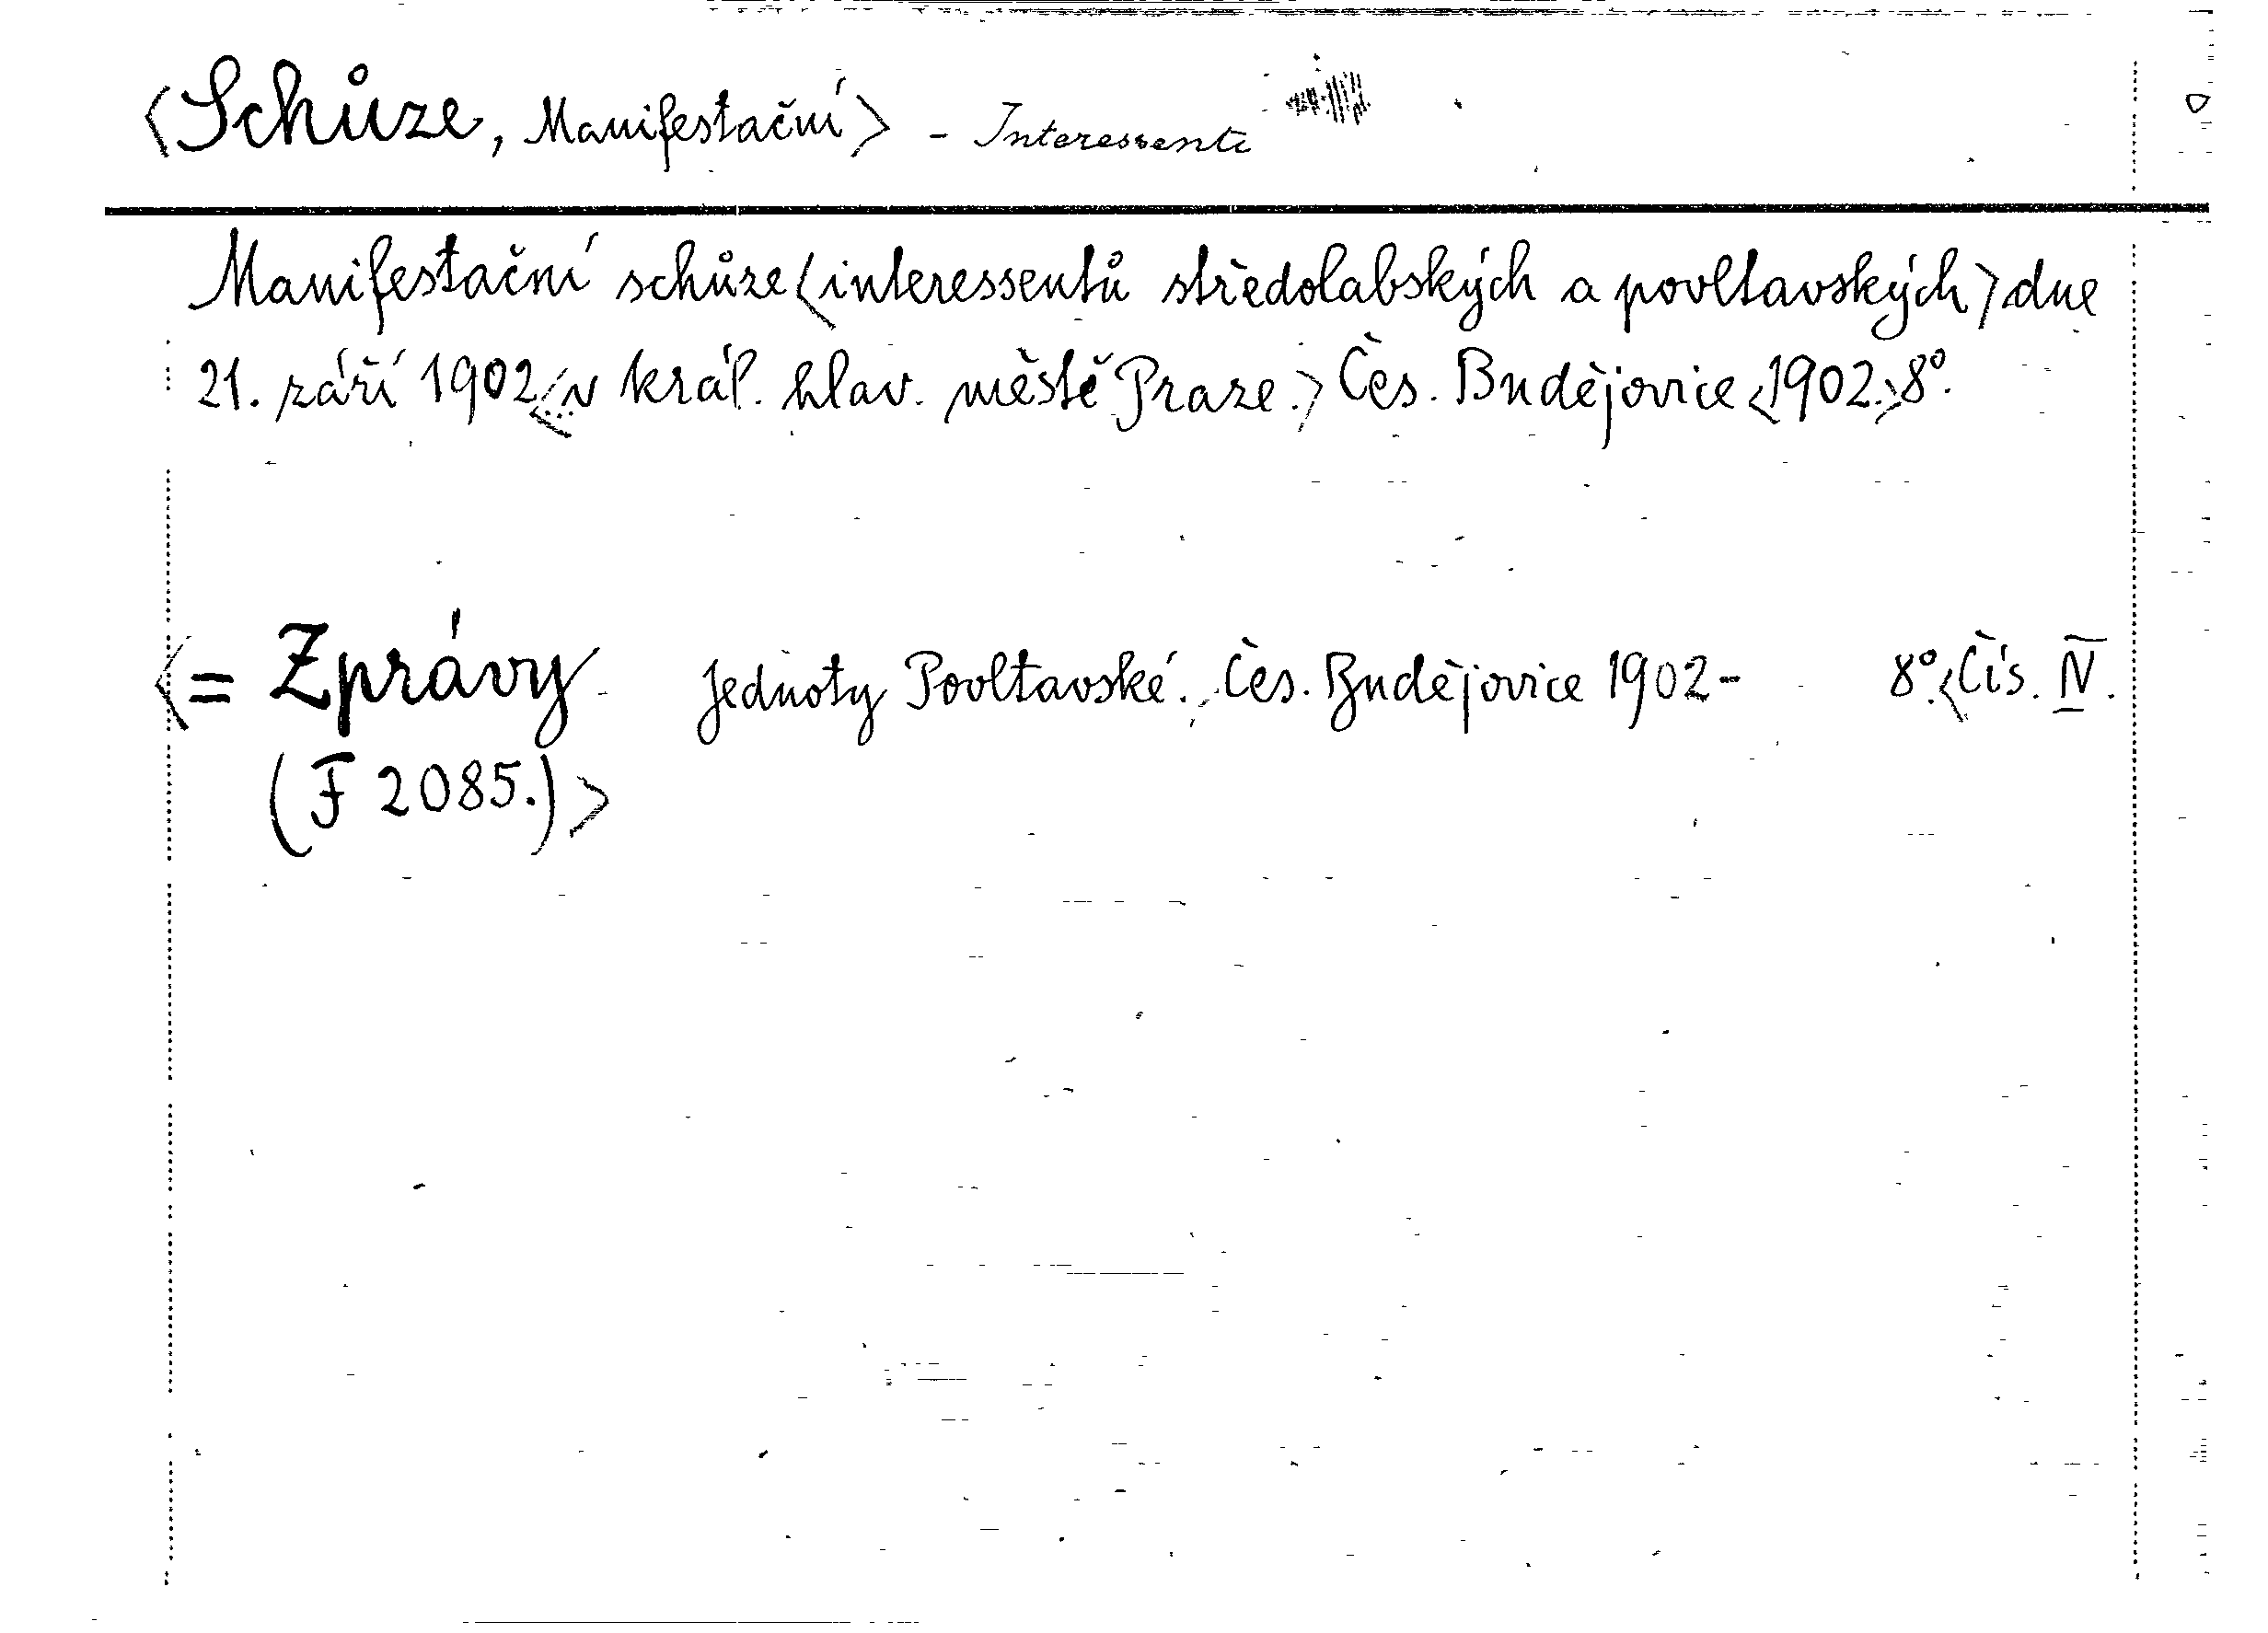 <Schůze, Manifestační> - Interessenti
Manifestační schůze <interessentů středolabských a povltavských> dne
21. září 1902 <v král. hlav. městě Praze.> Čes. Budějovice <1902.> 8°.
<= Zprávy Jednoty Povltavské. Čes. Budějovice 1902- 8°. <Čís. IV.
(F 2085.)>